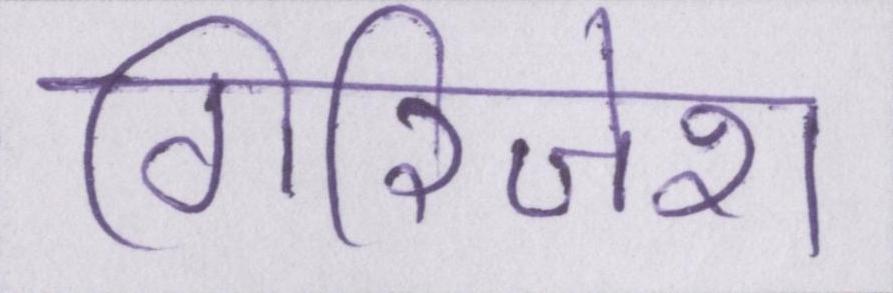 गिरिजेश